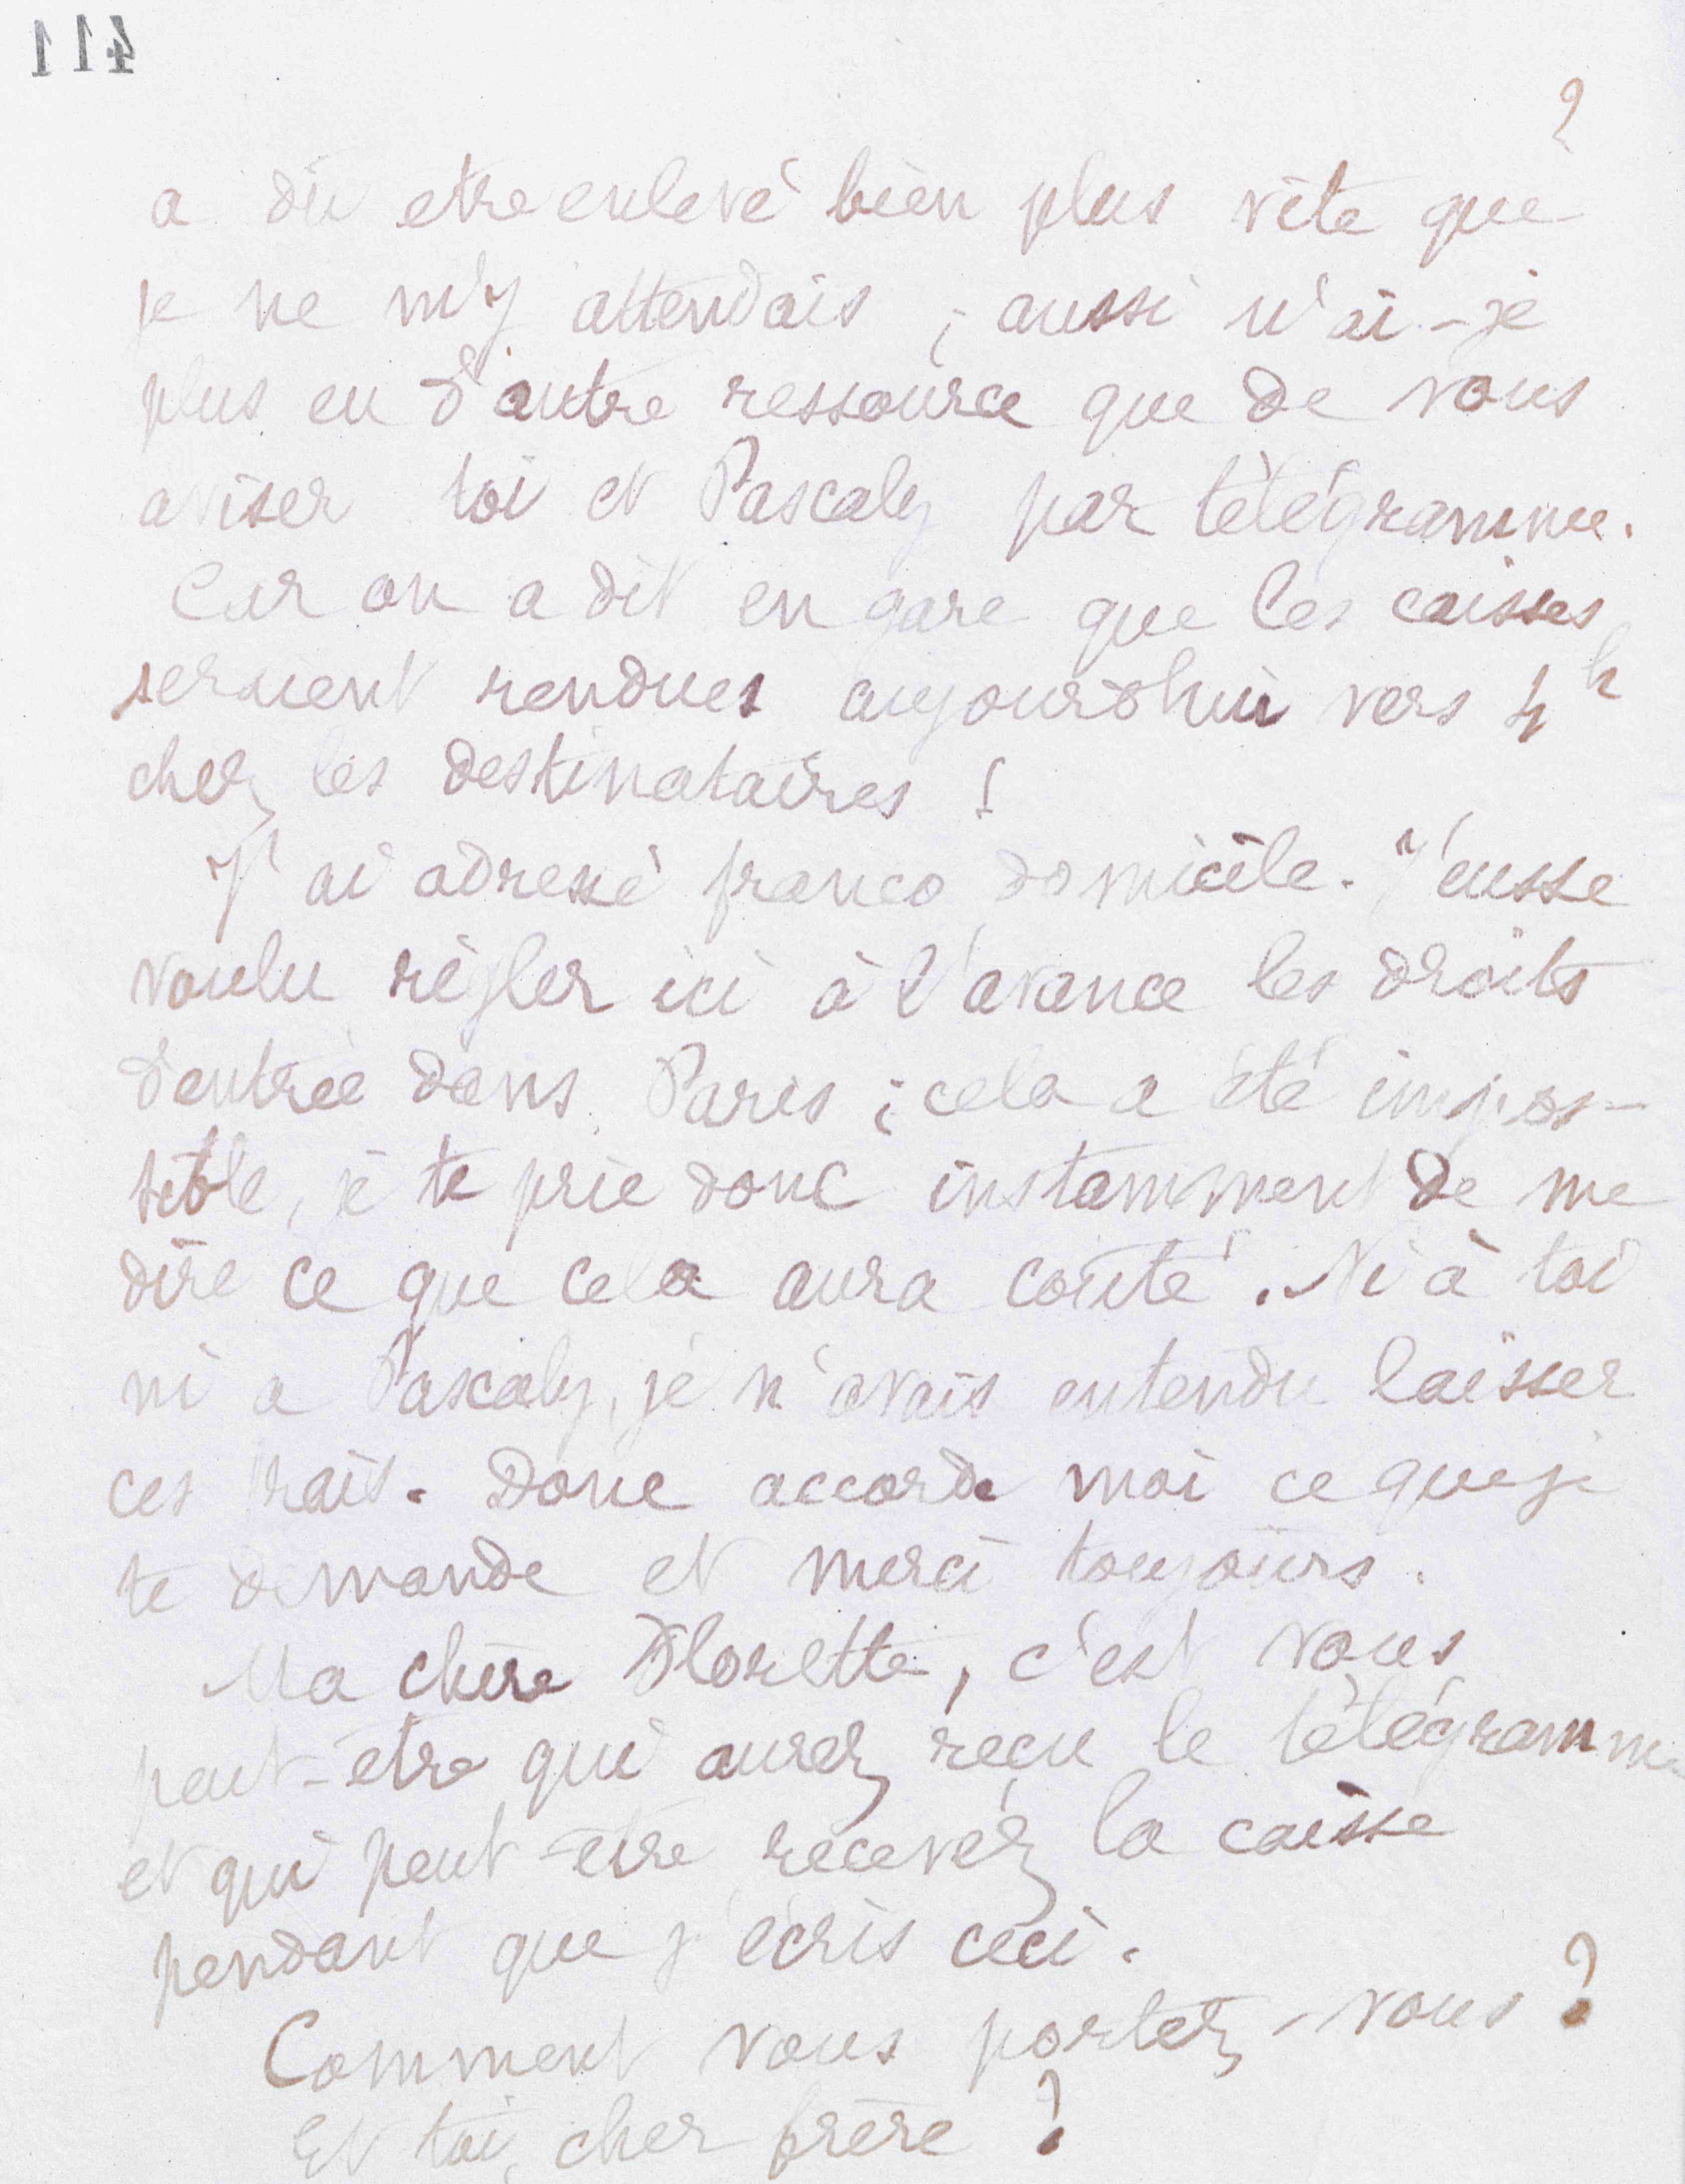 411
2
a dû etre enlevé bien plus vite que
je ne m'y attendais ; aussi n'ai-je
plus eu d'autre ressource que de vous
aviser toi et Pascaly par télégramme.
Car on a dit en gare que les caisses
seraient rendues aujourd'hui vers 4h
chez les destinataires !
J'ai adressé franco domicile. J'eusse
voulu régler ici à l'avance les droits
d'entrée dans Paris ; cela a été impos-
sible, je te prie donc instamment de me
dire ce que cela aura coûté. Ni à toi
ni a Pascaly, je n'avais entendu laisser
ces frais. Donc accorde moi ce que je
te demande et merci toujours.
Ma chère Florette, c'est vous
peut-être qui aurez reçu le télégramme
et qui peut-être recevez la caisse
pendant que j'écris ceci.
Comment vous portez-vous ?
Et toi, cher frère ?